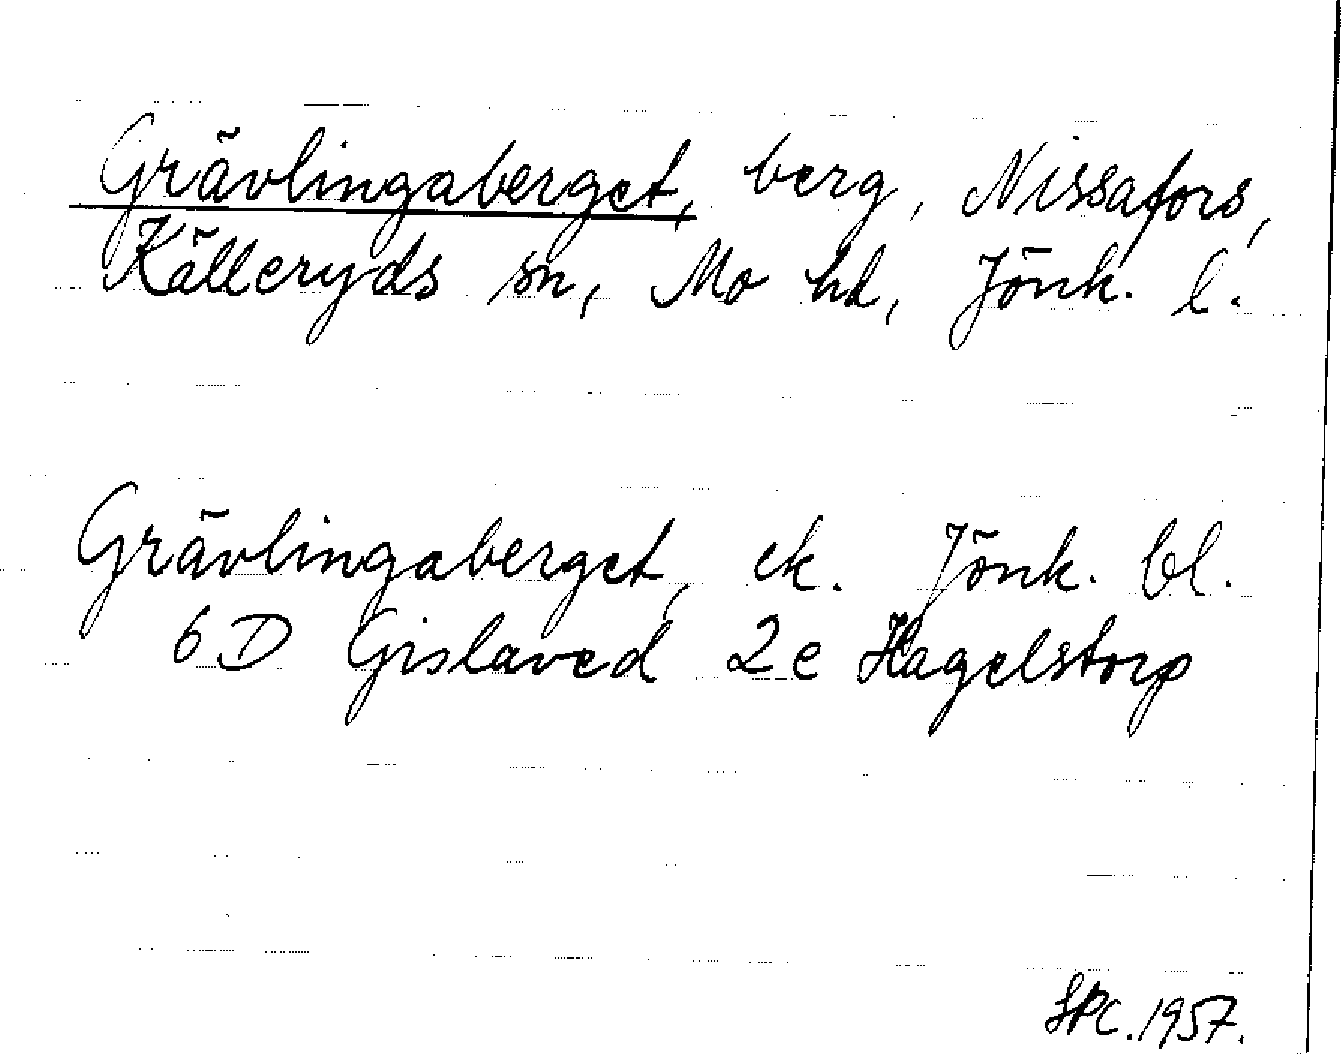 Grävlingaberget, berg, Nissafors,
Källeryds sn, Mo hd, Jönk. l.
Grävlingaberget, ek. Jönk. bl.
6 D Gislaved 2 e Hagelstorp
SPC. 1957.